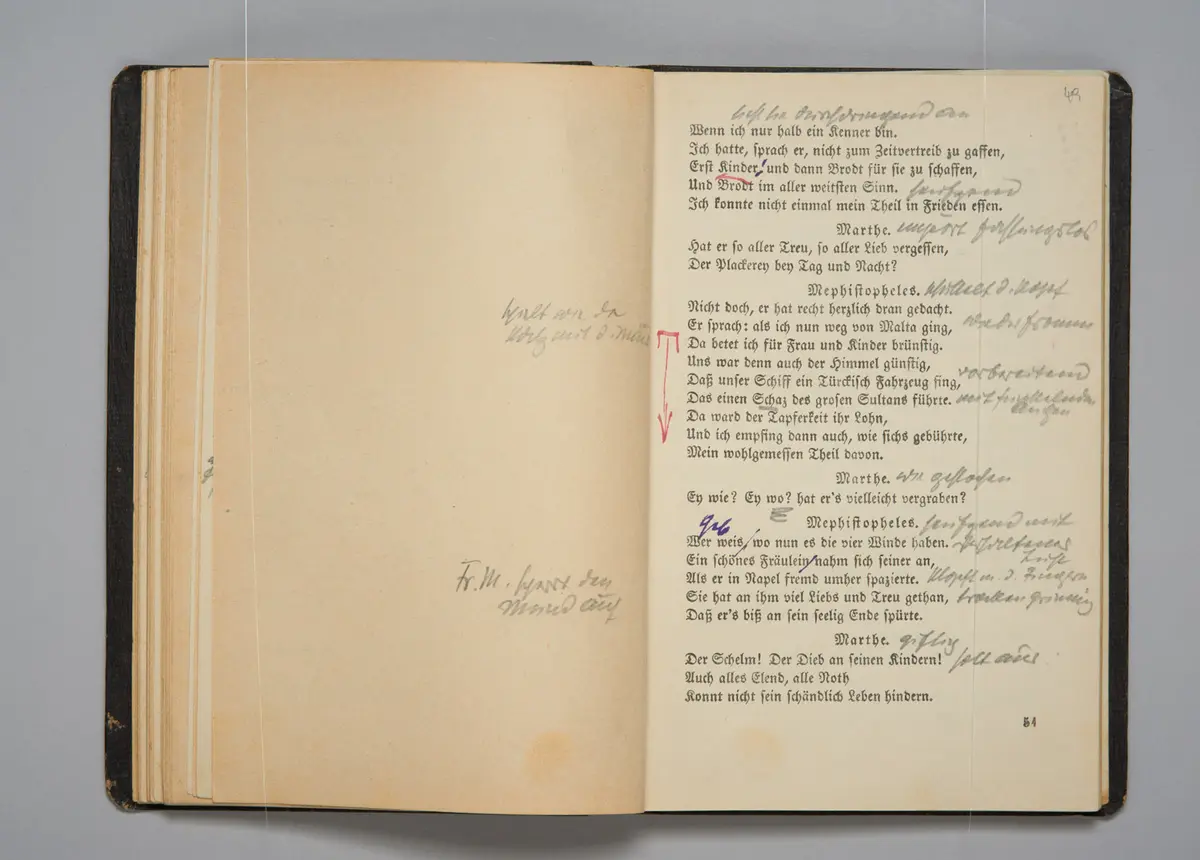 Fr. M. sperrt den
Mund auf
49
durchdringend an
Wenn ich nur halb ein Kenner bin.
Ich hatte, sprach er, nicht zum Zeitvertreib zu gaffen,
Erst Kinder! und dann Brodt für sie zu schaffen,
Und Brodt im aller weitsten Sinn. seufzend
Ich konnte nicht einmal mein Theil in Frieden essen.
Marthe. fassungslos
Hat er so aller Treu, so aller Lieb vergessen,
Der Plackerey bey Tag und Nacht?
Mephistopheles. schüttelt d. Kopf
Nicht doch, er hat recht herzlich dran gedacht.
Er sprach: als ich nun weg von Malta ging,
Da betet ich für Frau und Kinder brünstig.
Uns war denn auch der Himmel günstig,
Daß unser Schiff ein Türckisch Fahrzeug fing, vorbereitend
Das einen Schaz des grosen Sultans führte. mit funkelnden
Augen
Da ward der Tapferkeit ihr Lohn,
Und ich empfing dann auch, wie sichs gebührte,
Mein wohlgemessen Theil davon.
Marthe. wie gestochen
Ey wie? Ey wo? hat er's vielleicht vergraben?
Mephistopheles. seufzend mit
Wer weis, wo nun es die vier Winde haben. verhaltener
Lust
Ein schönes Fräulein nahm sich seiner an,
Als er in Napel fremd umher spazierte. klopft m. d. Fingern
Sie hat an ihm viel Liebs und Treu gethan, trocken grinsig
Daß er's biß an sein seelig Ende spürte.
Marthe. giftig
Der Schelm! Der Dieb an seinen Kindern!
Auch alles Elend, alle Noth
Konnt nicht sein schändlich Leben hindern.
51